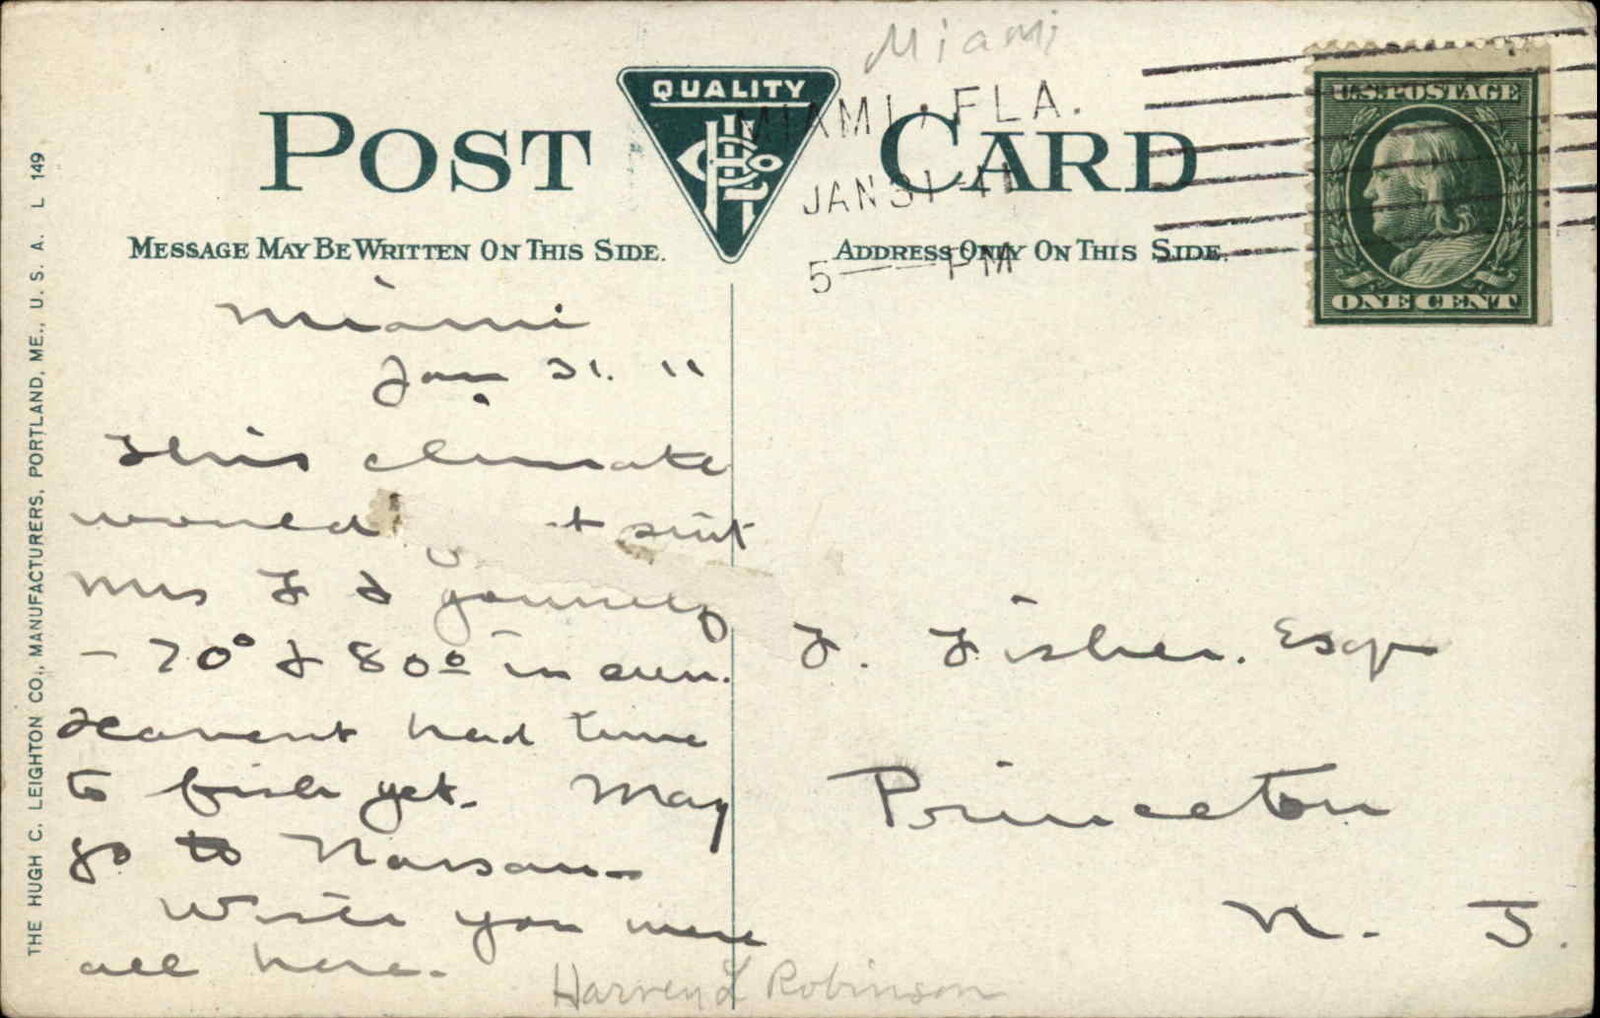 Miami
QUALITY
POST CARD
MIAMI, FLA.
JAN 31 - 11
5 — PM
U.S. POSTAGE
ONE CENT
MESSAGE MAY BE WRITTEN ON THIS SIDE.
ADDRESS ONLY ON THIS SIDE.
THE HUGH C. LEIGHTON CO., MANUFACTURERS, PORTLAND, ME., U. S. A. L 149
Miami
Jan 31. 11
This climate
would suit
Mrs F &
- 70° & 80° in sun.
Havent had time
to fish yet. May
go to Nassau -
Wish you were
all here.
Harvey L Robinson
F. Fisher. Esq
Princeton
N. J.